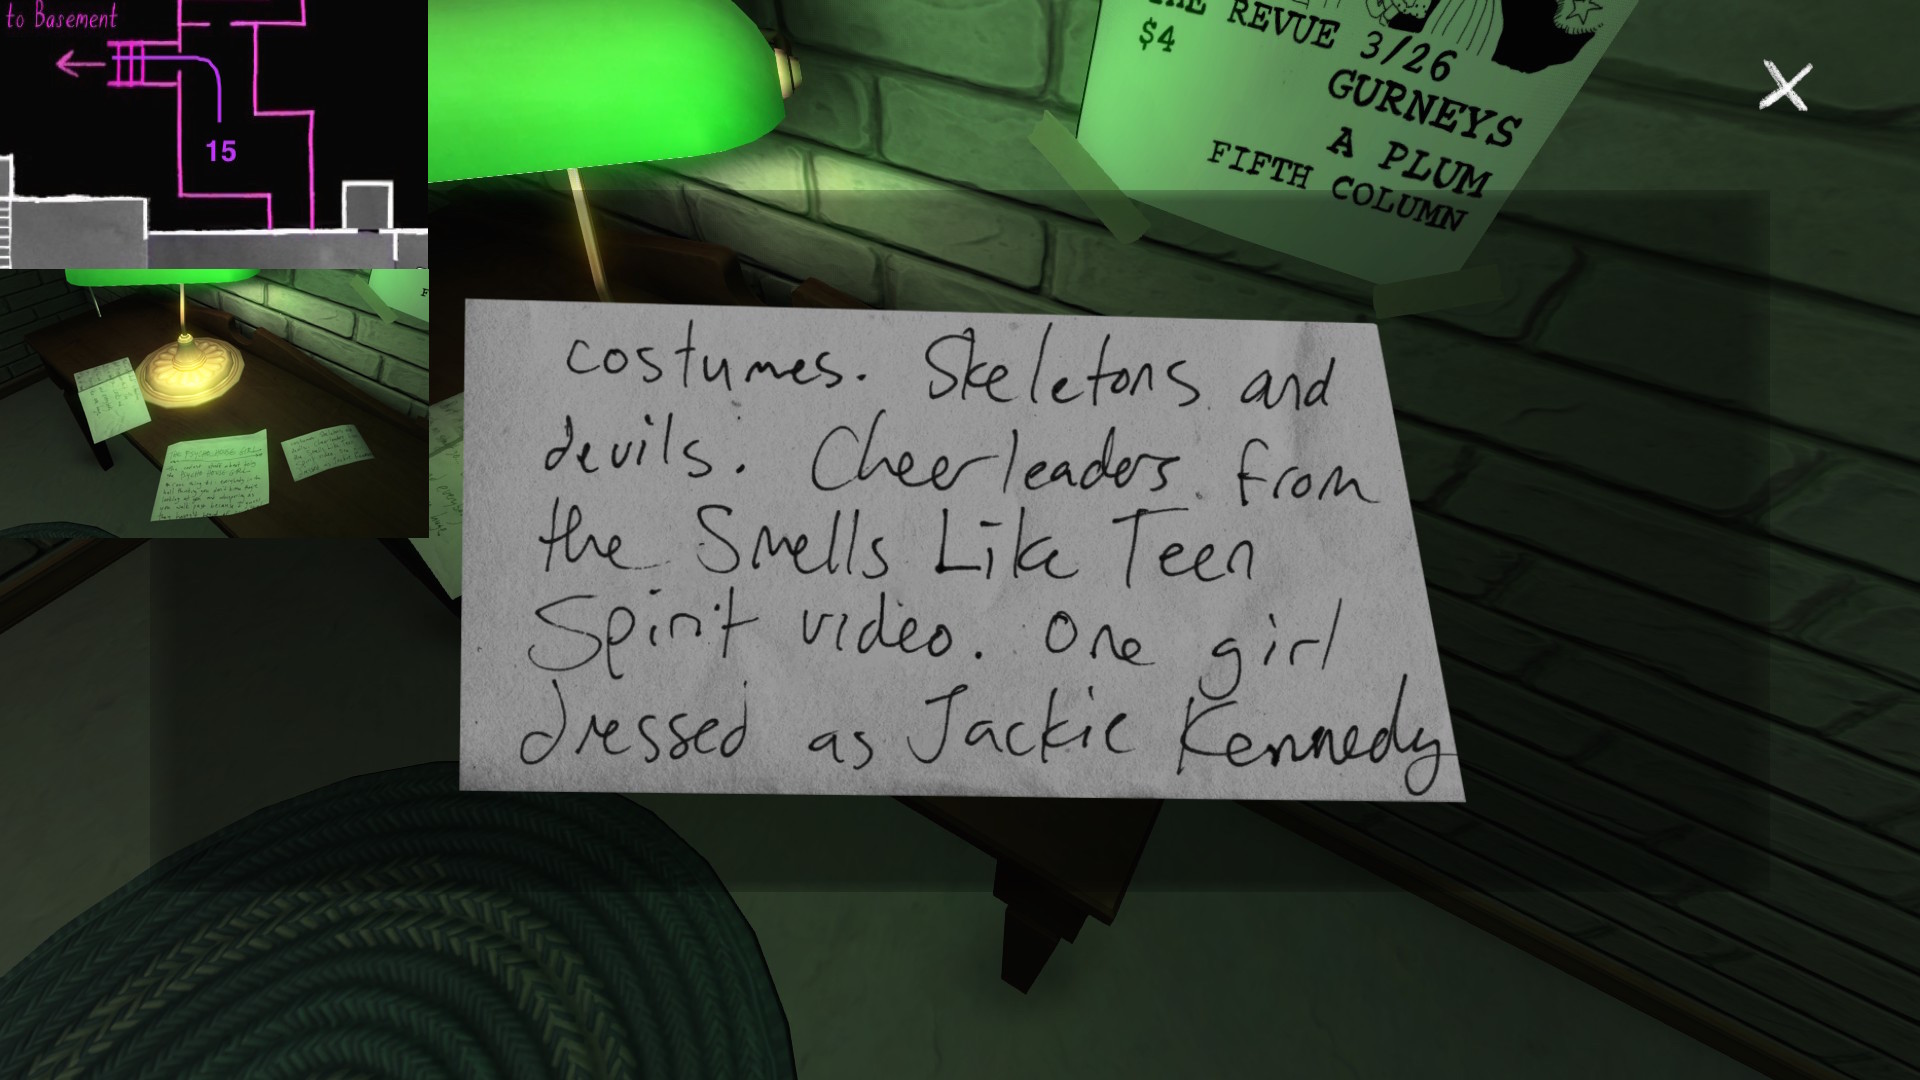 to Basement
15
REVUE 3/26
$4
GURNEYS
A PLUM
FIFTH COLUMN
costumes. Skeletons and
devils. Cheerleaders from
the Smells Like Teen
Spirit video. One girl
dressed as Jackie Kennedy